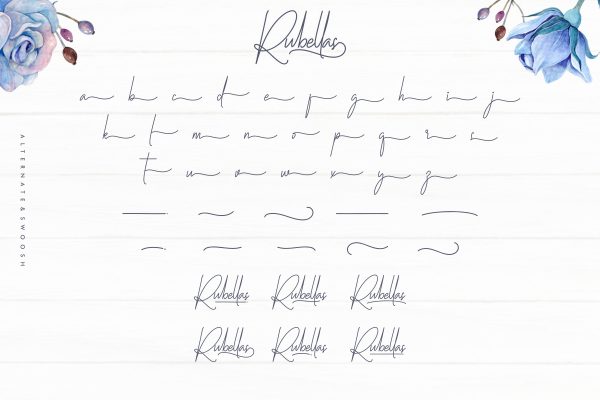 Rubellas
a b c d e f g h i j
k l m n o p q r s
t u v w x y z
ALTERNATE & SWOOSH
Rubellas Rubellas Rubellas
Rubellas Rubellas Rubellas